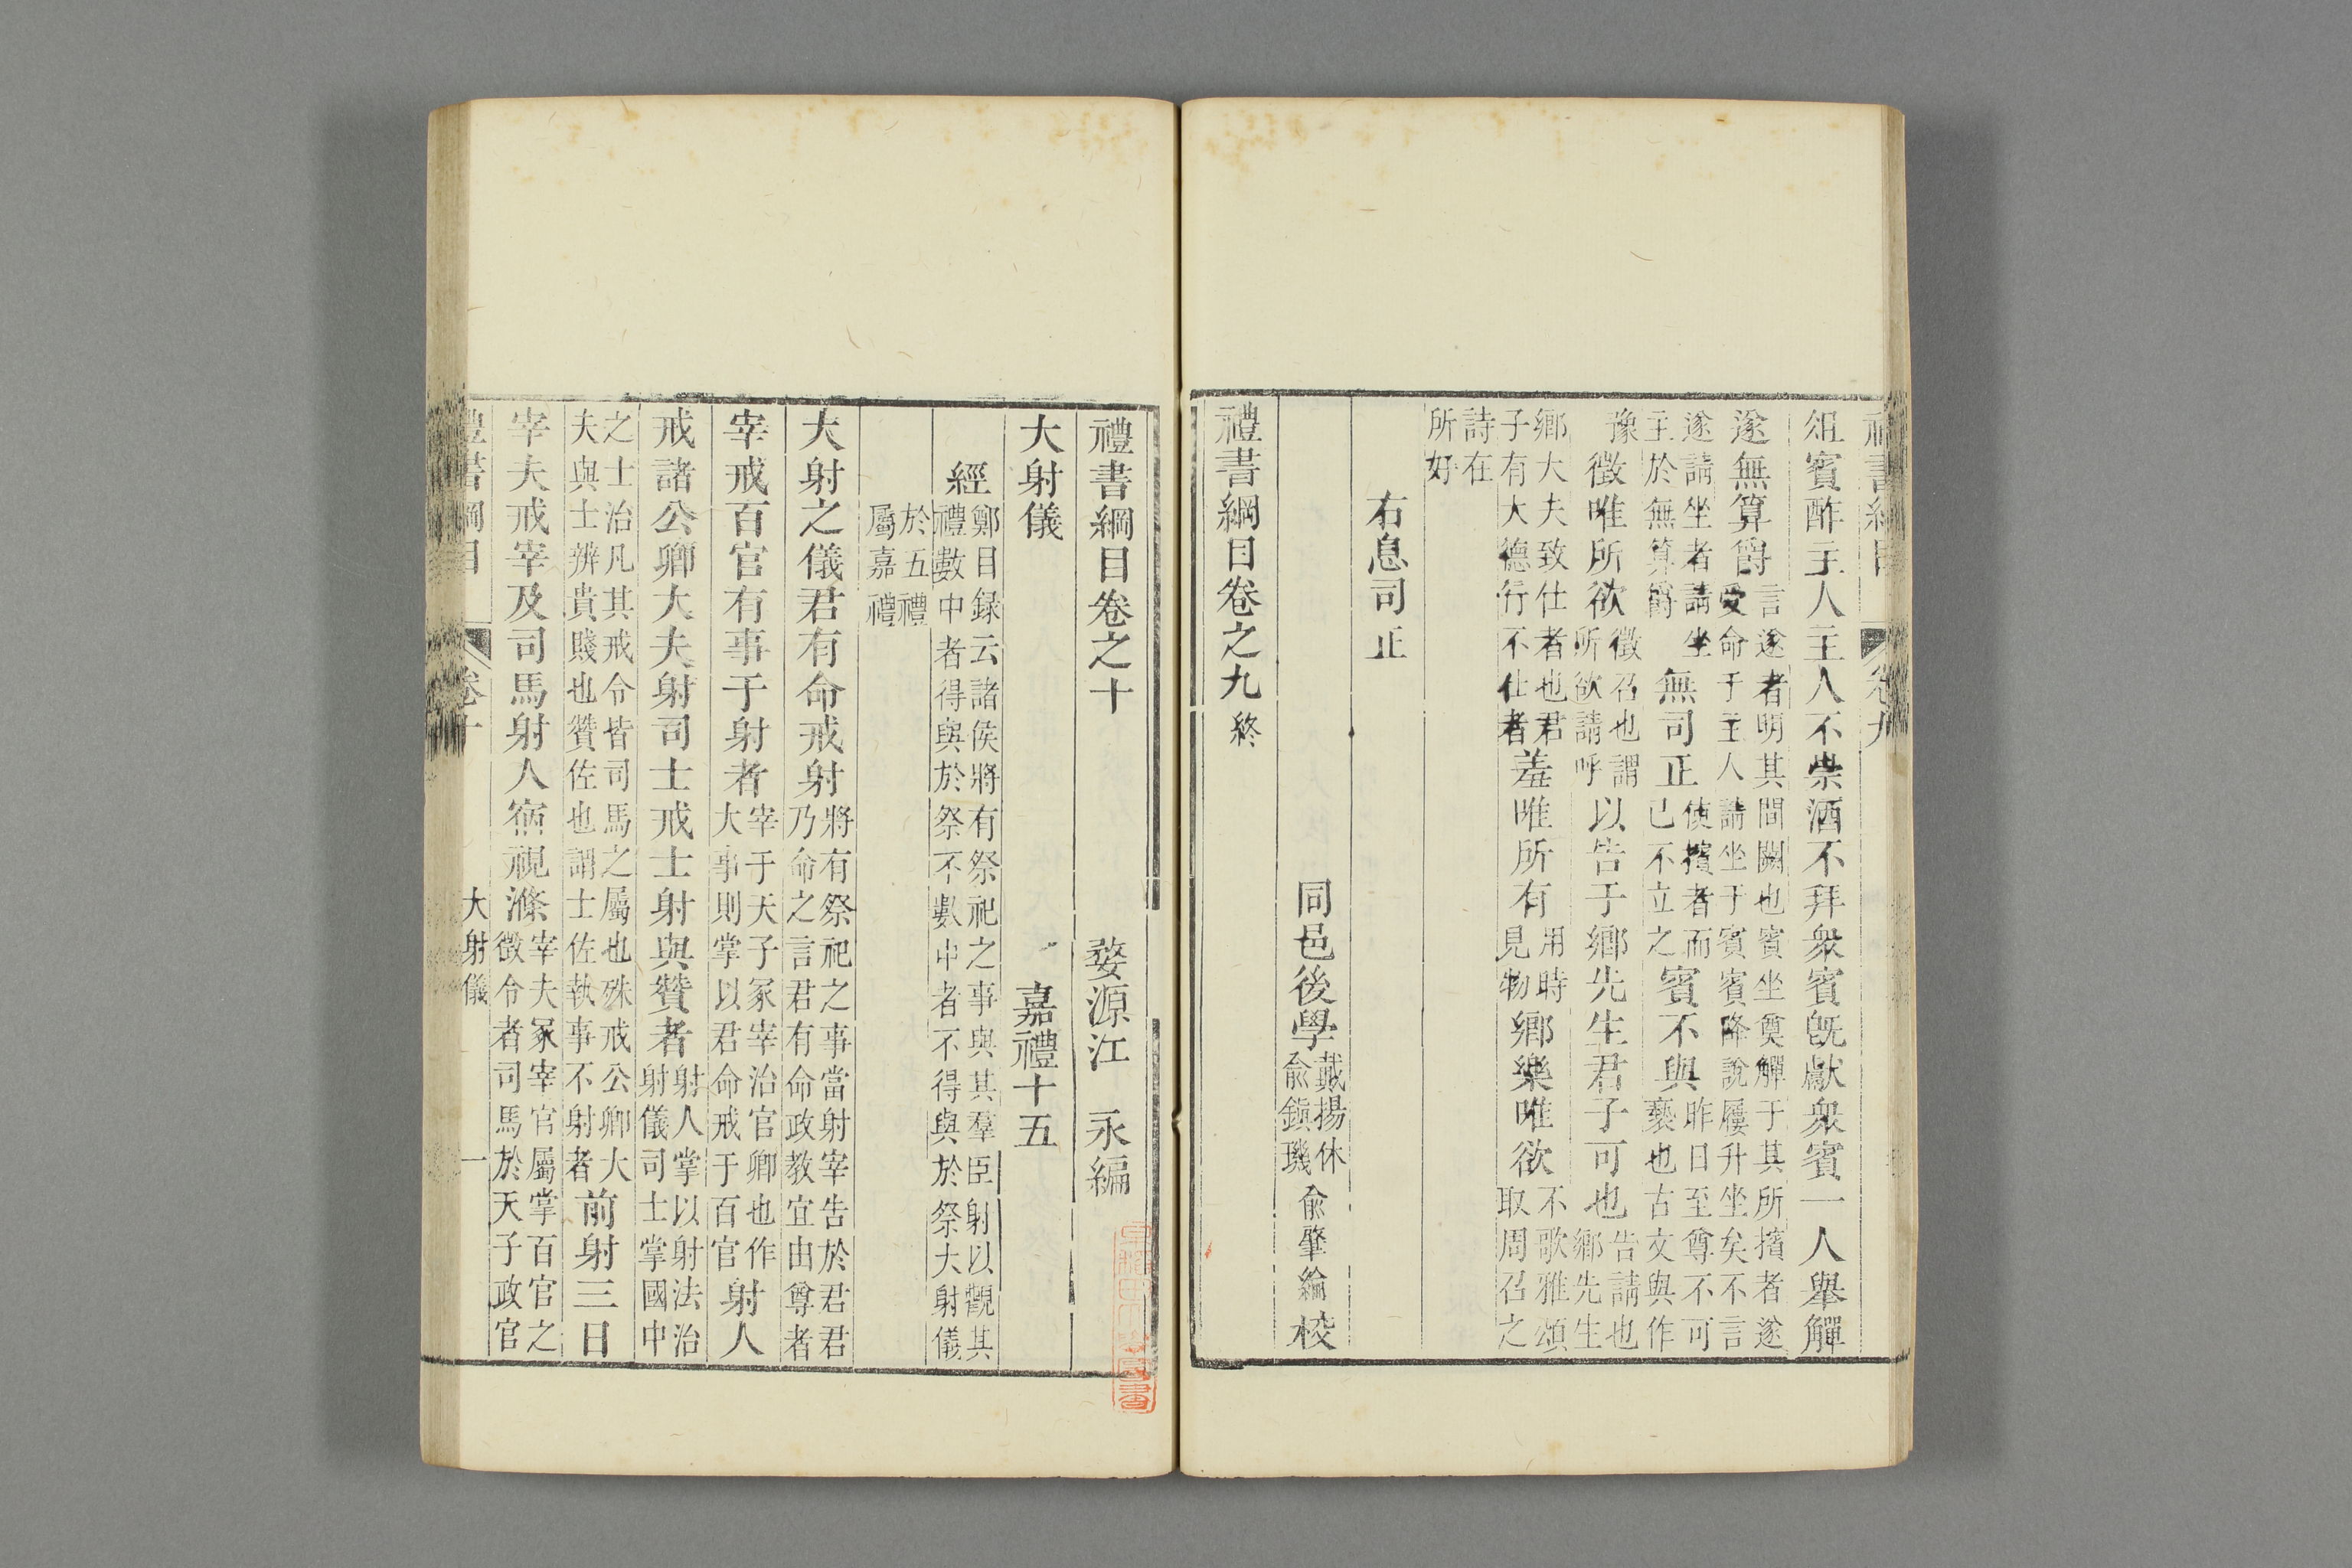 禮書綱目 卷九
俎賓酢主人主人不崇酒不拜衆賓旣獻衆賓一人舉觶
遂無算爵言遂者明其間闕也賓坐奠觶于其所擯者遂受命于主人請坐于賓賓降說屨升坐矣不言
遂請坐者請坐主於無算爵無司正使擯者而已不立之賓不與昨日至尊不可褻也古文與作
豫徵唯所欲徵召也謂所欲請呼以告于鄉先生君子可也告請也鄉先生
鄉大夫致仕者也君子有大德行不仕者羞唯所有用時見物鄉樂唯欲不歌雅頌取周召之
詩在所好
右息司正
同邑後學戴揚休俞鎮璣俞肇綸校
禮書綱目卷之九終
禮書綱目卷之十 婺源江永編
大射儀 嘉禮十五
經鄭目録云諸侯將有祭祀之事與其羣臣射以觀其禮數中者得與於祭不數中者不得與於祭大射儀
於五禮屬嘉禮
大射之儀君有命戒射將有祭祀之事當射宰告於君君乃命之言君有命政教宜由尊者
宰戒百官有事于射者宰于天子冢宰治官卿也作大事則掌以君命戒于百官射人
戒諸公卿大夫射司士戒士射與贊者射人掌以射法治射儀司士掌國中
之士治凡其戒令皆司馬之屬也殊戒公卿大夫與士辨貴賤也贊佐也謂士佐執事不射者前射三日
宰夫戒宰及司馬射人宿視滌宰夫冢宰官屬掌百官之徵令者司馬於天子政官
禮書綱目 卷十 大射儀 一